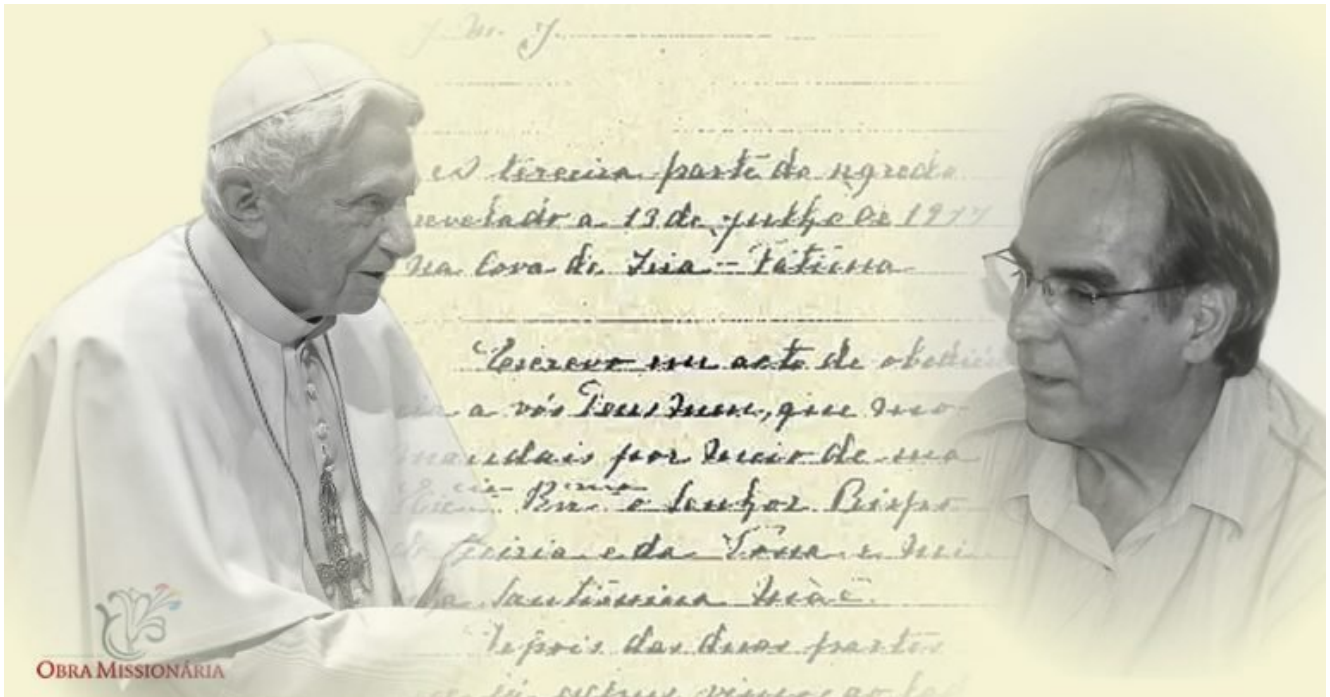 J. M. J.
A terceira parte do segredo
revelado a 13 de Julho de 1917
na Cova da Iria - Fátima
Escrevo em acto de
a vós Deus meu, que mo
mandais por meio de sua
o Senhor Bispo
de Leiria e da Vossa e mi
Santissima Mãe.
Depois das duas partes
já vimos ao
OBRA MISSIONÁRIA